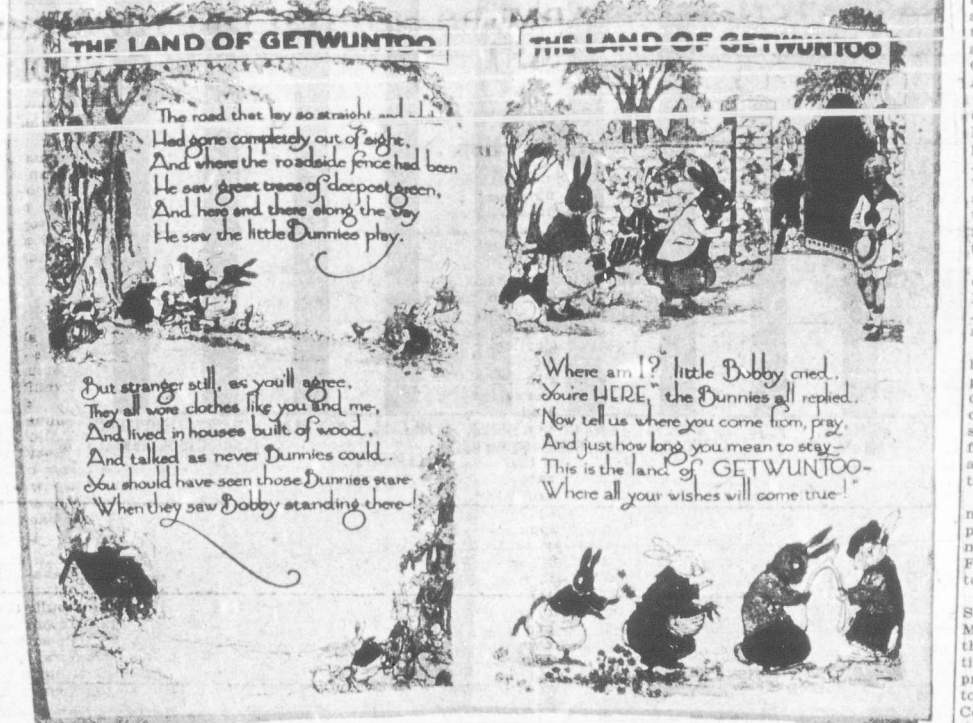 THE LAND OF GETWUNTOO
The road that lay so straight and
Had gone completely out of sight,
And where the roadside fence had been
He saw great trees of deepest green,
And here and there along the way
He saw the little Bunnies play.
But stranger still, as you'll agree,
They all wore clothes like you and me,
And lived in houses built of wood,
And talked as never Bunnies could.
You should have seen those Bunnies stare
When they saw Bobby standing there!
THE LAND OF GETWUNTOO
"Where am I?" little Bobby cried.
"You're HERE," the Bunnies all replied.
"Now tell us where you come from, pray,
And just how long you mean to stay—
This is the land of GETWUNTOO—
Where all your wishes will come true!"